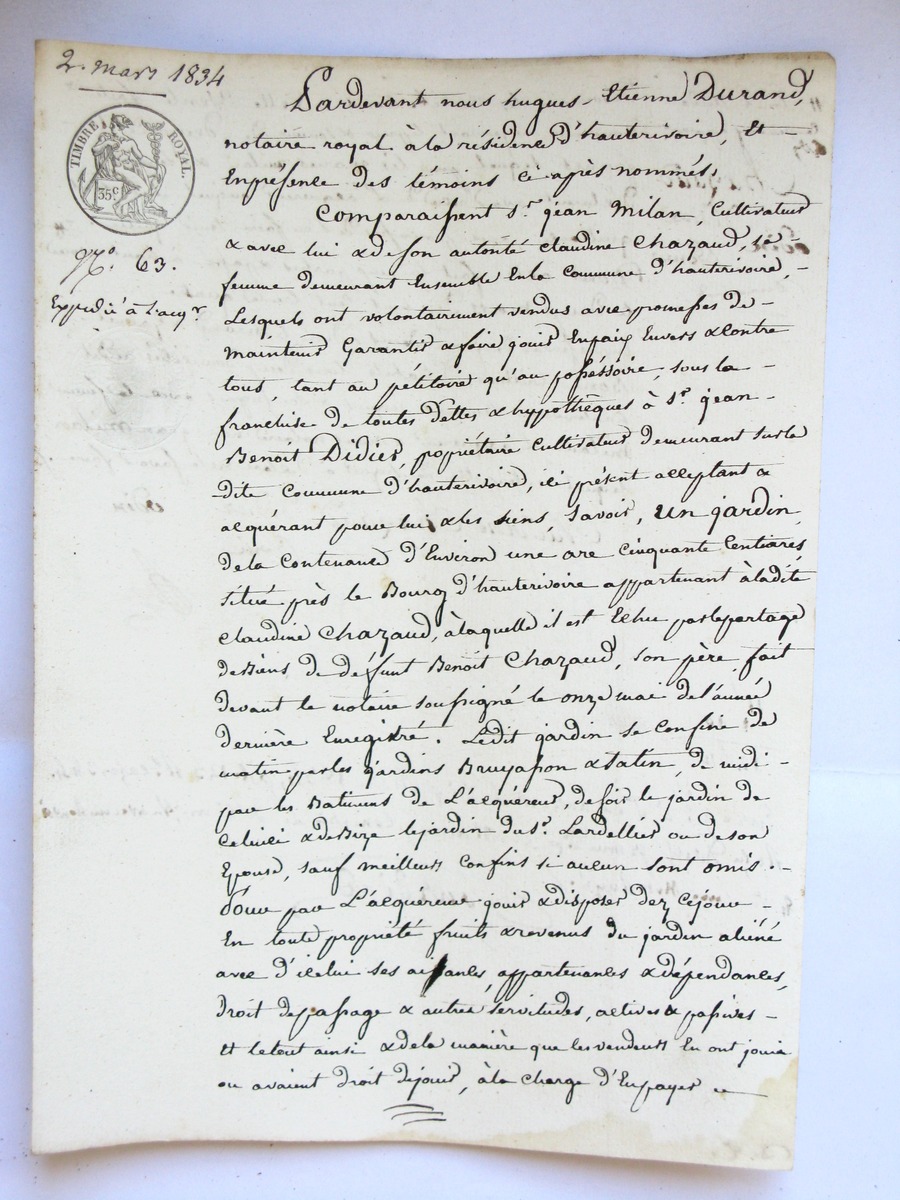 2. mars 1834
TIMBRE ROYAL.
35 c
N.º 63.
Expédié à l'acqr
Pardevant nous hugues-Etienne Durand,
notaire royal à la résidence d'hauterivoire, Et
En présence des témoins ci après nommés,
Comparaissent sr. jean Milan, Cultivateur
& avec lui & de son autorité Claudine Chazaud, sa
femme demeurant Ensemble En la Commune d'hauterivoire,
Lesquels ont volontairement vendus avec promesses de
maintenir Garantir & faire jouir En paix Envers & Contre
tous, tant au pétitoire qu'au posséssoire, sous la
franchise de toutes dettes & hyppothèques à sr. jean-
Benoit Didier, propriétaire Cultivateur demeurant sur la
dite Commune d'hauterivoire, ici présent acceptant &
acquérant pour lui & les siens, Savoir, un jardin
de la Contenance d'Environ une are Cinquante Centiares,
situé près le Bourg d'hauterivoire appartenant à ladite
Claudine Chazaud, à laquelle il est Echu par le partage
des Biens de défunt Benoit Chazaud, son père, fait
devant le notaire soussigné le onze mai de l'année
dernière Enregistré. Ledit jardin se Confine de
matin par les jardins Bruyasson & Satin, de midi
par les Batimens de L'acquéreur, de soir le jardin de
Celui ci & de Bize le jardin du sr. Lardellier ou de son
Epouse, sauf meilleurs Confins si aucun sont omis.
pour par L'acquéreur jouir & disposer dez Ce jour
En toute propriété fruits & revenus du jardin aliéné
avec d'icelui ses aisances, appartenances & dépendances,
droit de passage & autres servitudes, actives & passives
Et le tout ainsi & de la manière que les vendeurs En ont joui
ou avaient droit de jouir, à la charge d'En payer